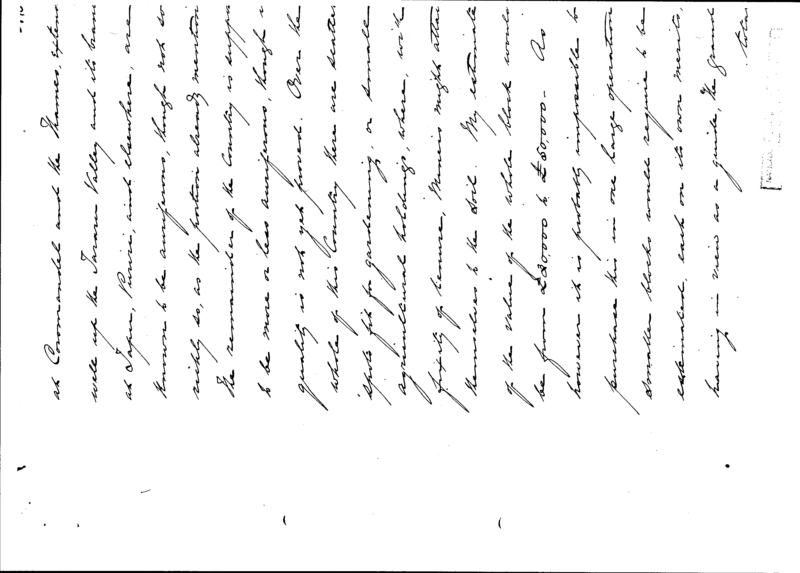 at Coromandel and the Thames, exten
well up the Tararu Valley and its bran
at Tapu, Puriri, and elsewhere, are
known to be auriferous, though not so
richly so, as the portion already mention
The remainder of the Country is suppo
to be more or less auriferous, though i
quality is not yet proved. Over the
whole of this Country there are scatter
spots fit for gardening, or small
agricultural holdings, where, with
fixity of tenure, Miners might attac
themselves to the soil. My estimate
of the value of the whole block would
be from £20,000 to £50,000 - As
however it is probably impossible to
purchase this in one large operation
smaller blocks would require to be
estimated, each on its own merits,
having in view as a guide, the grand
total